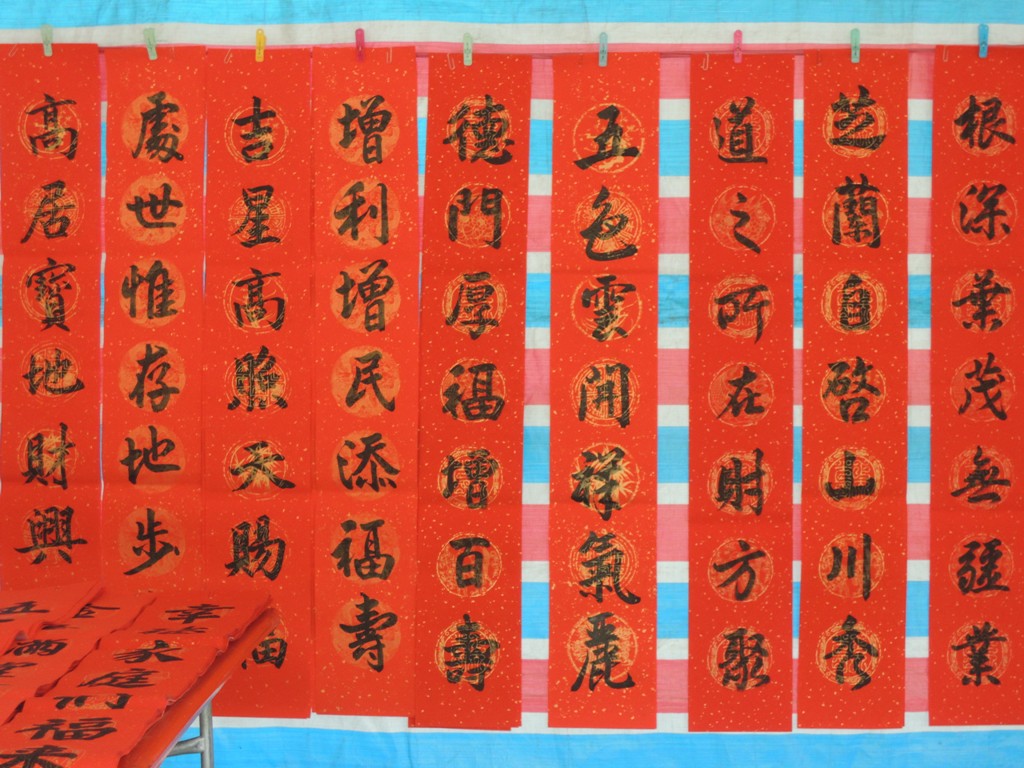 根深葉茂無疆業
芝蘭自啓山川秀
道之所在財方聚
五色雲開祥氣麗
德門厚福增百壽
增利增民添福壽
吉星高照天賜
處世惟存地步
高居寶地財興
家庭
福